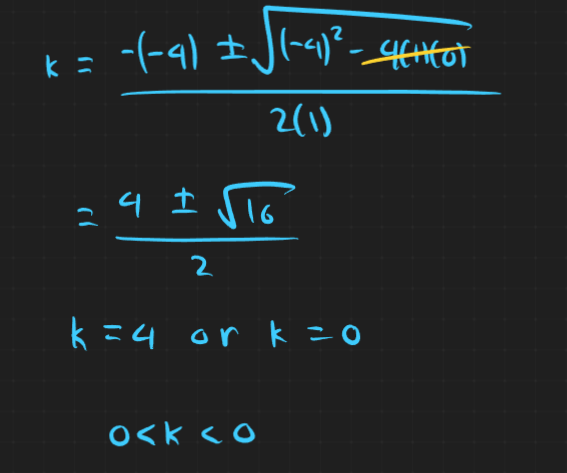 k = -(-4) ± √(-4)² - 4(1)(0)
2(1)
= 4 ± √16
2
k = 4 or k = 0
0 < k < 0